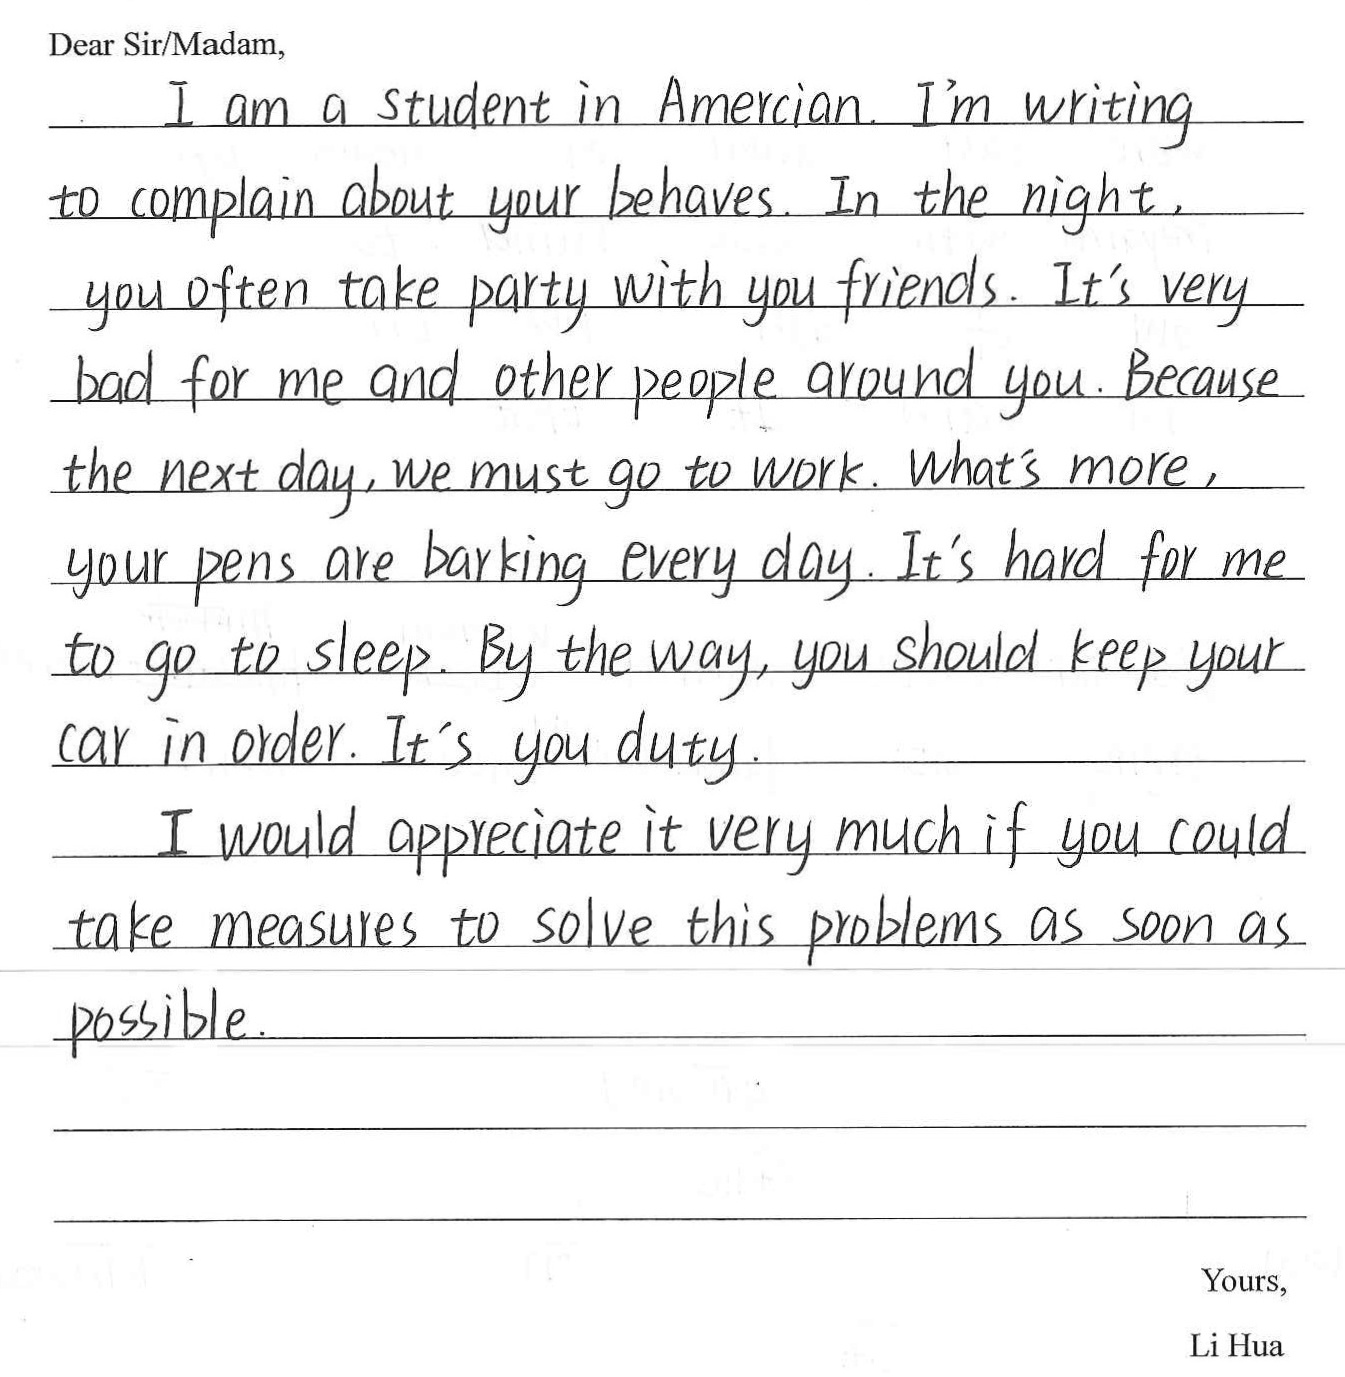 Dear Sir/Madam,
I am a student in Amercian. I'm writing
to complain about your behaves. In the night,
you often take party with you friends. It's very
bad for me and other people around you. Because
the next day, we must go to work. What's more,
your pens are barking every day. It's hard for me
to go to sleep. By the way, you should keep your
car in order. It's you duty.
I would appreciate it very much if you could
take measures to solve this problems as soon as
possible.
Yours,
Li Hua